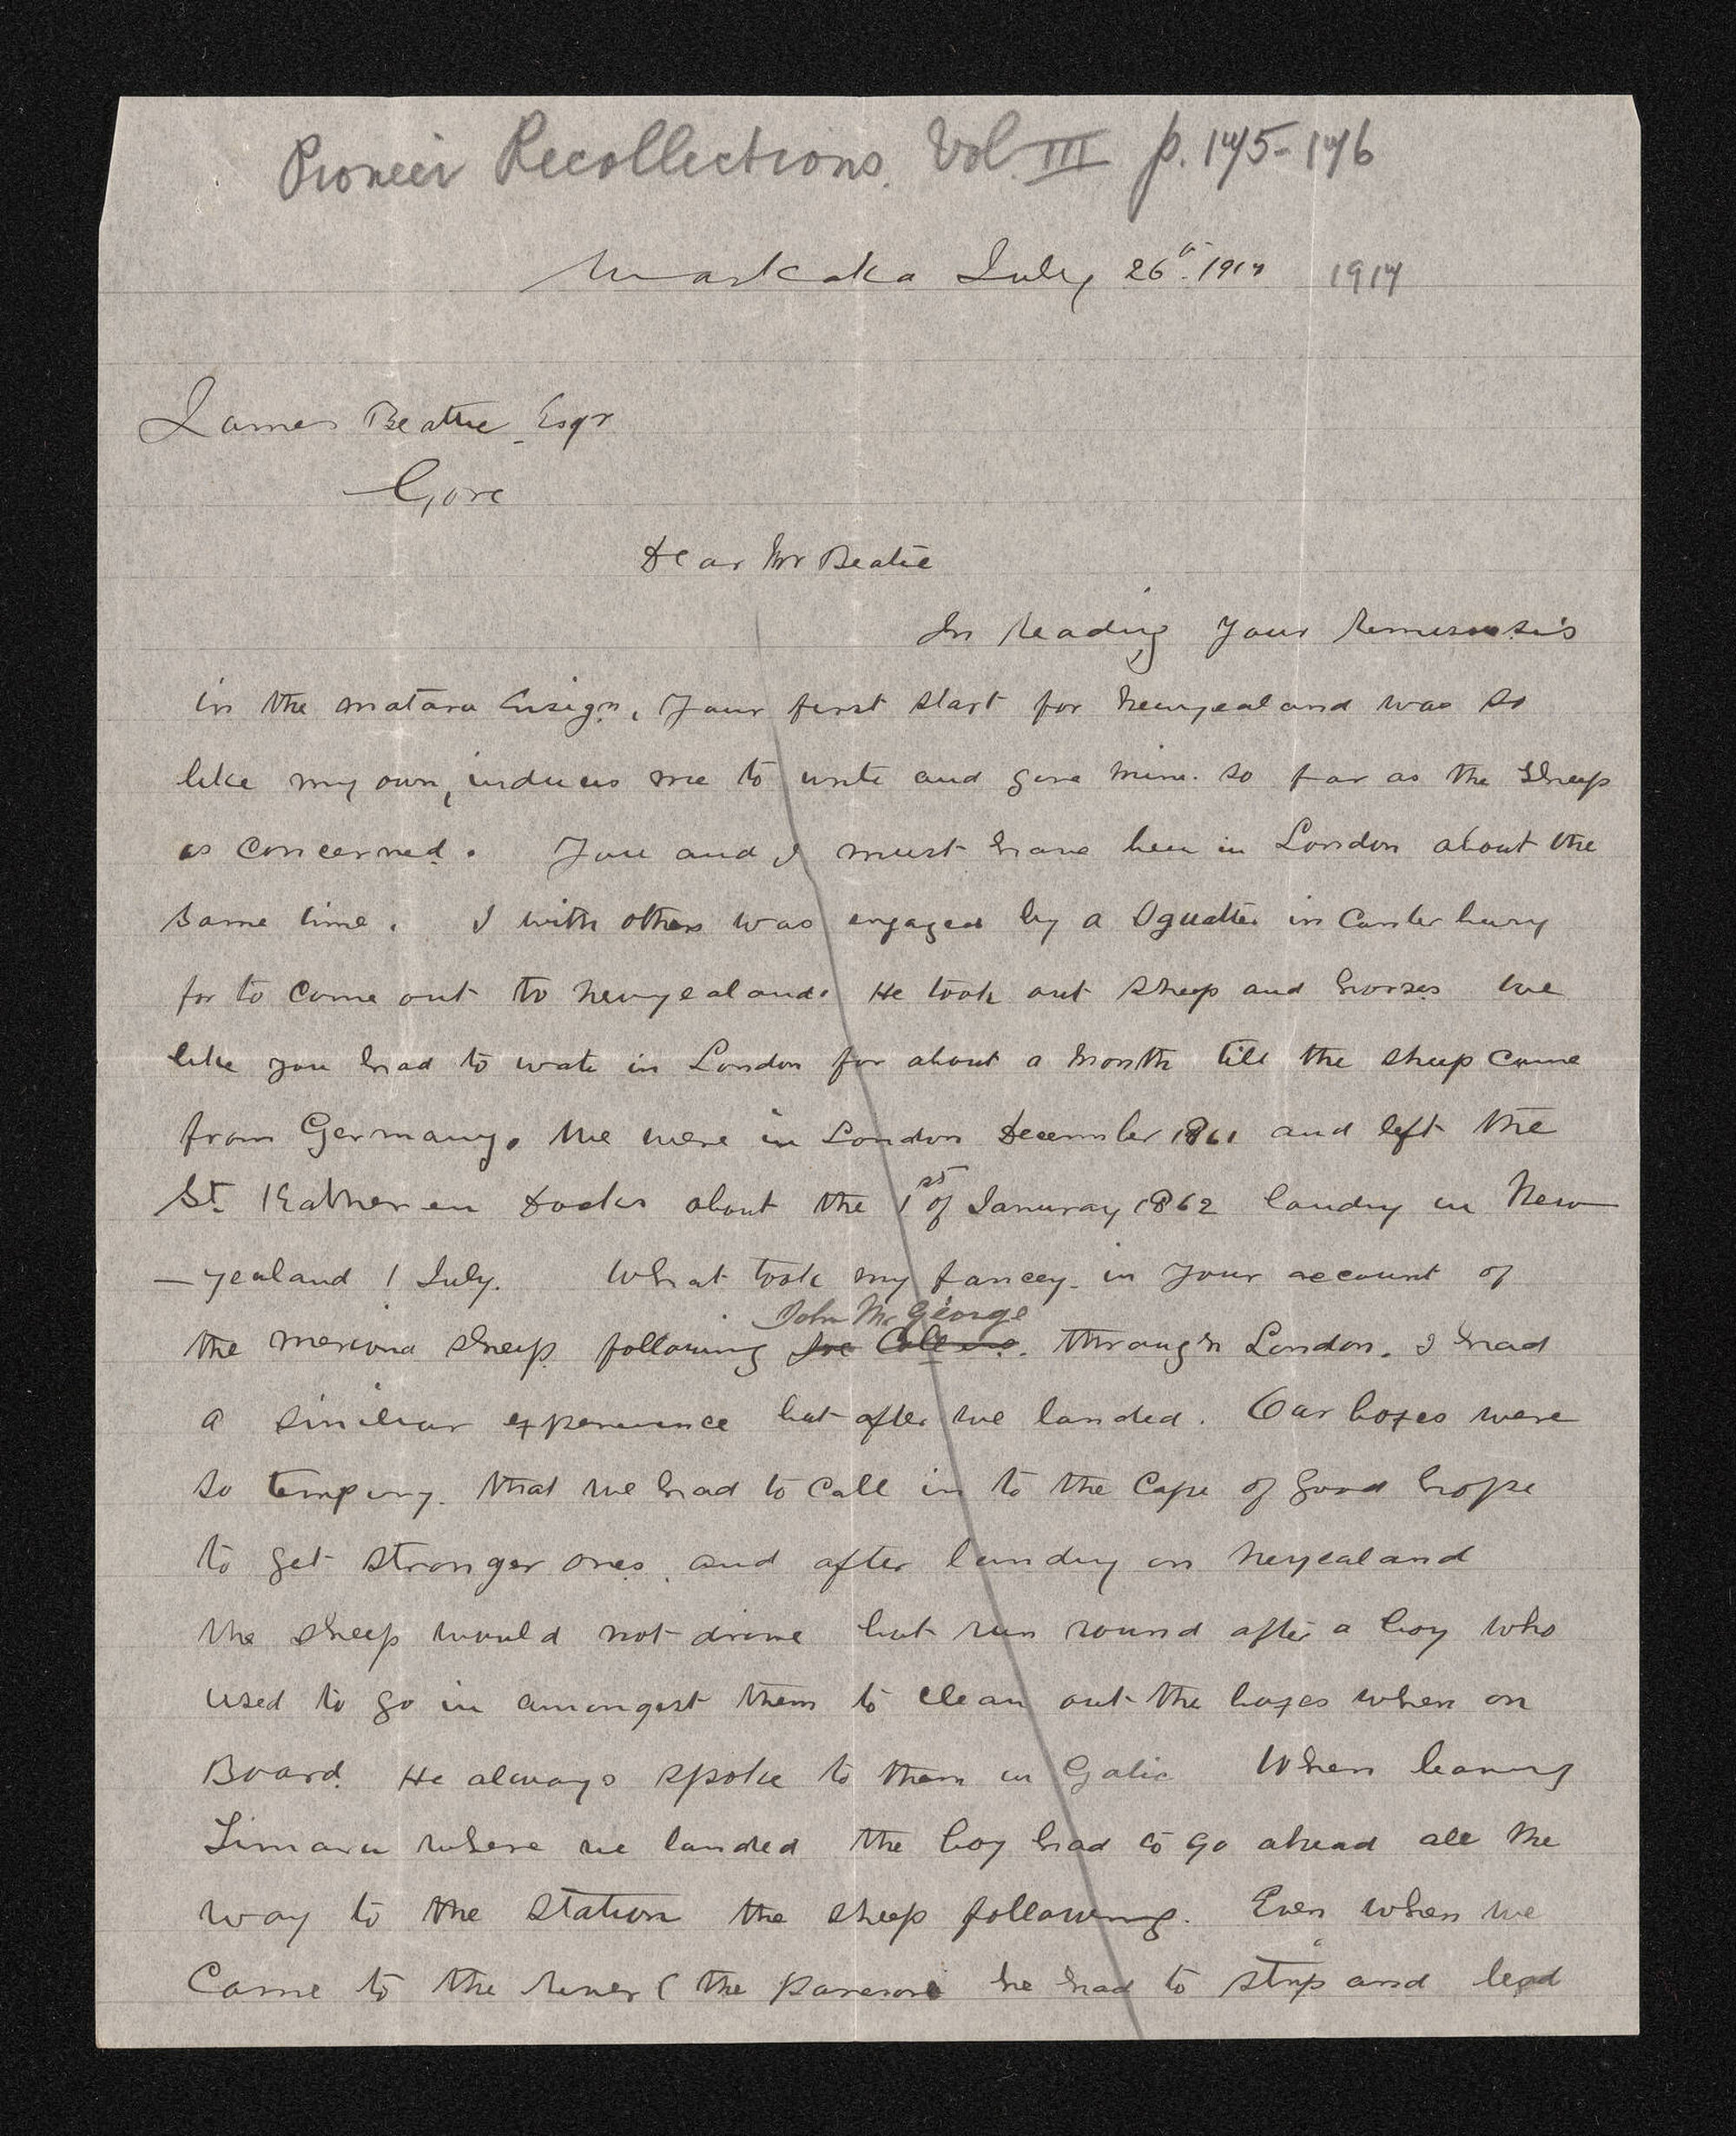 Pioneer Recollections. Vol. III p. 145-146
Waikaka July 26th. 1914 1914
James Beattie Esqr
Gore
Dear Mr Beatie
In reading your
in the matara Ensign, your first start for Newzealand was so
like my own, induces me to write and give mine. so far as the sheep
is concerned. You and I must have been in London about the
same time. I with others was engaged by a Squatter in Canterbury
for to come out to Newzealand. He took out sheep and horses we
like you had to wate in London for about a month till the sheep came
from Germany. We were in London December 1861 and left the
St. Katheren Docks about the 1st of January 1862 landing in New
-zealand 1 July. What took my fancey in your account of
John McGeorge
the merino sheep following Joe Collins. through London. I had
a similiar experience but after we landed. Our boxes were
so that we had to call in to the Cape of good hope
to get stronger ones, and after landing in Newzealand
the sheep would not drive but run round after a boy who
used to go in amongst them to clean out the boxes when on
Board. He always spoke to them in Galic When leaving
Timaru where we landed the boy had to go ahead all the
way to the station the sheep following. Even when we
Came to the river ( the he had to strip and lead